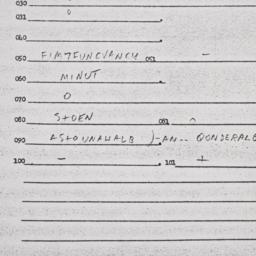 030
031 0
040
050 FIMTFUNCVANCY 051 -
060 MINUT
070 O
080 STOEN 081
090 ASTOUNAWALB )-AN-- QONDERALB
100 - 101 +